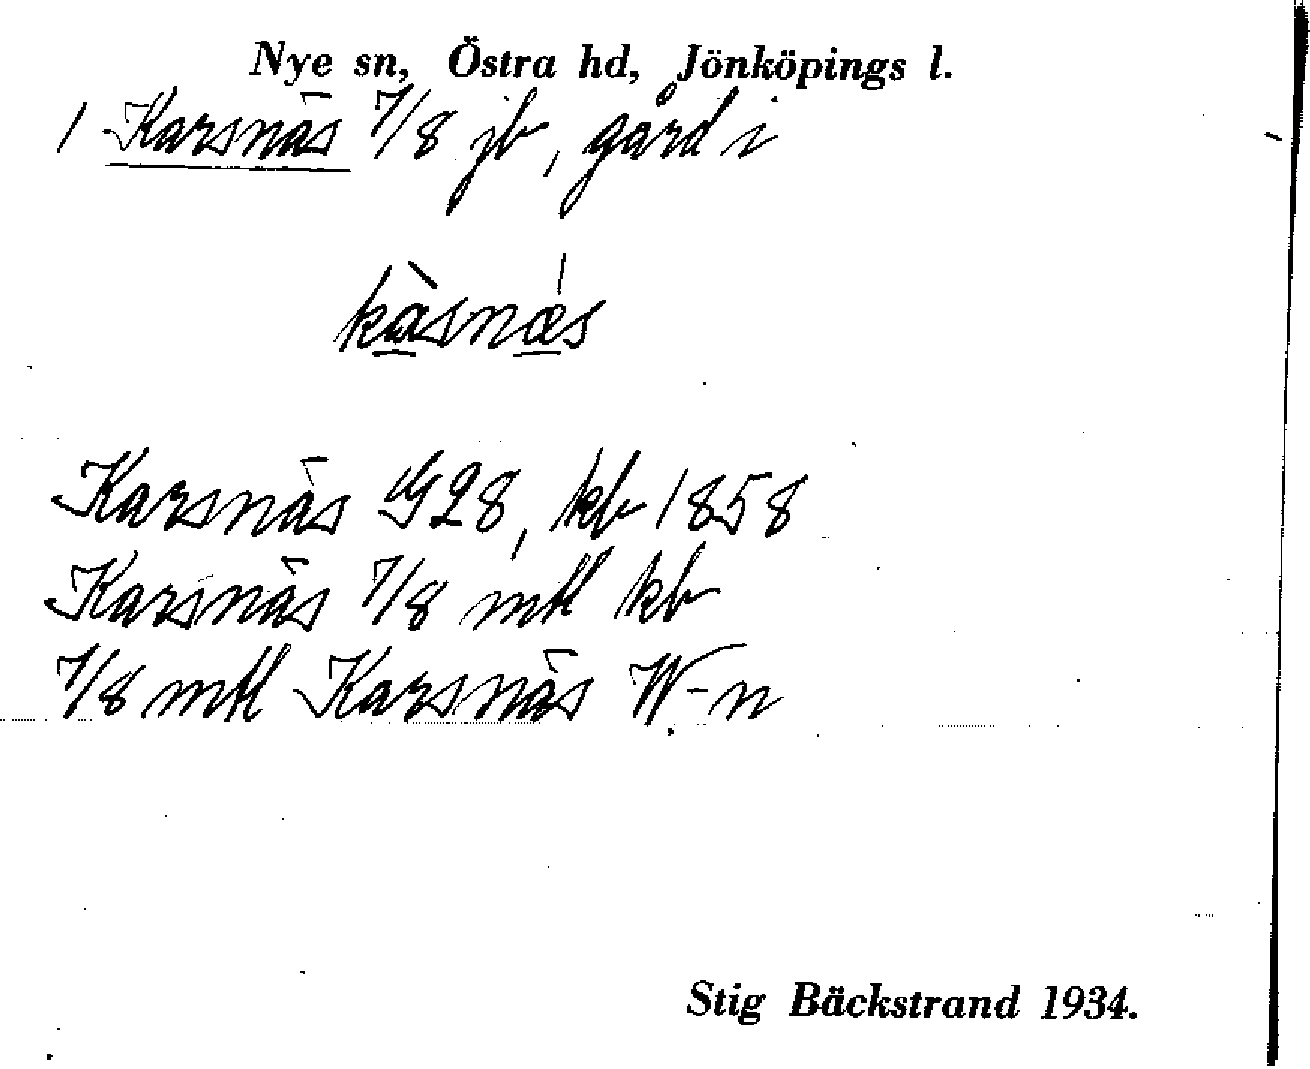 Nye sn, Östra hd, Jönköpings l.
1 Karsnäs 7/8 jb, gård i
kàsnæs
Karsnäs G28, kb 1858
Karsnäs 7/8 mtl kb
7/8 mtl Karsnäs W-n
Stig Bäckstrand 1934.